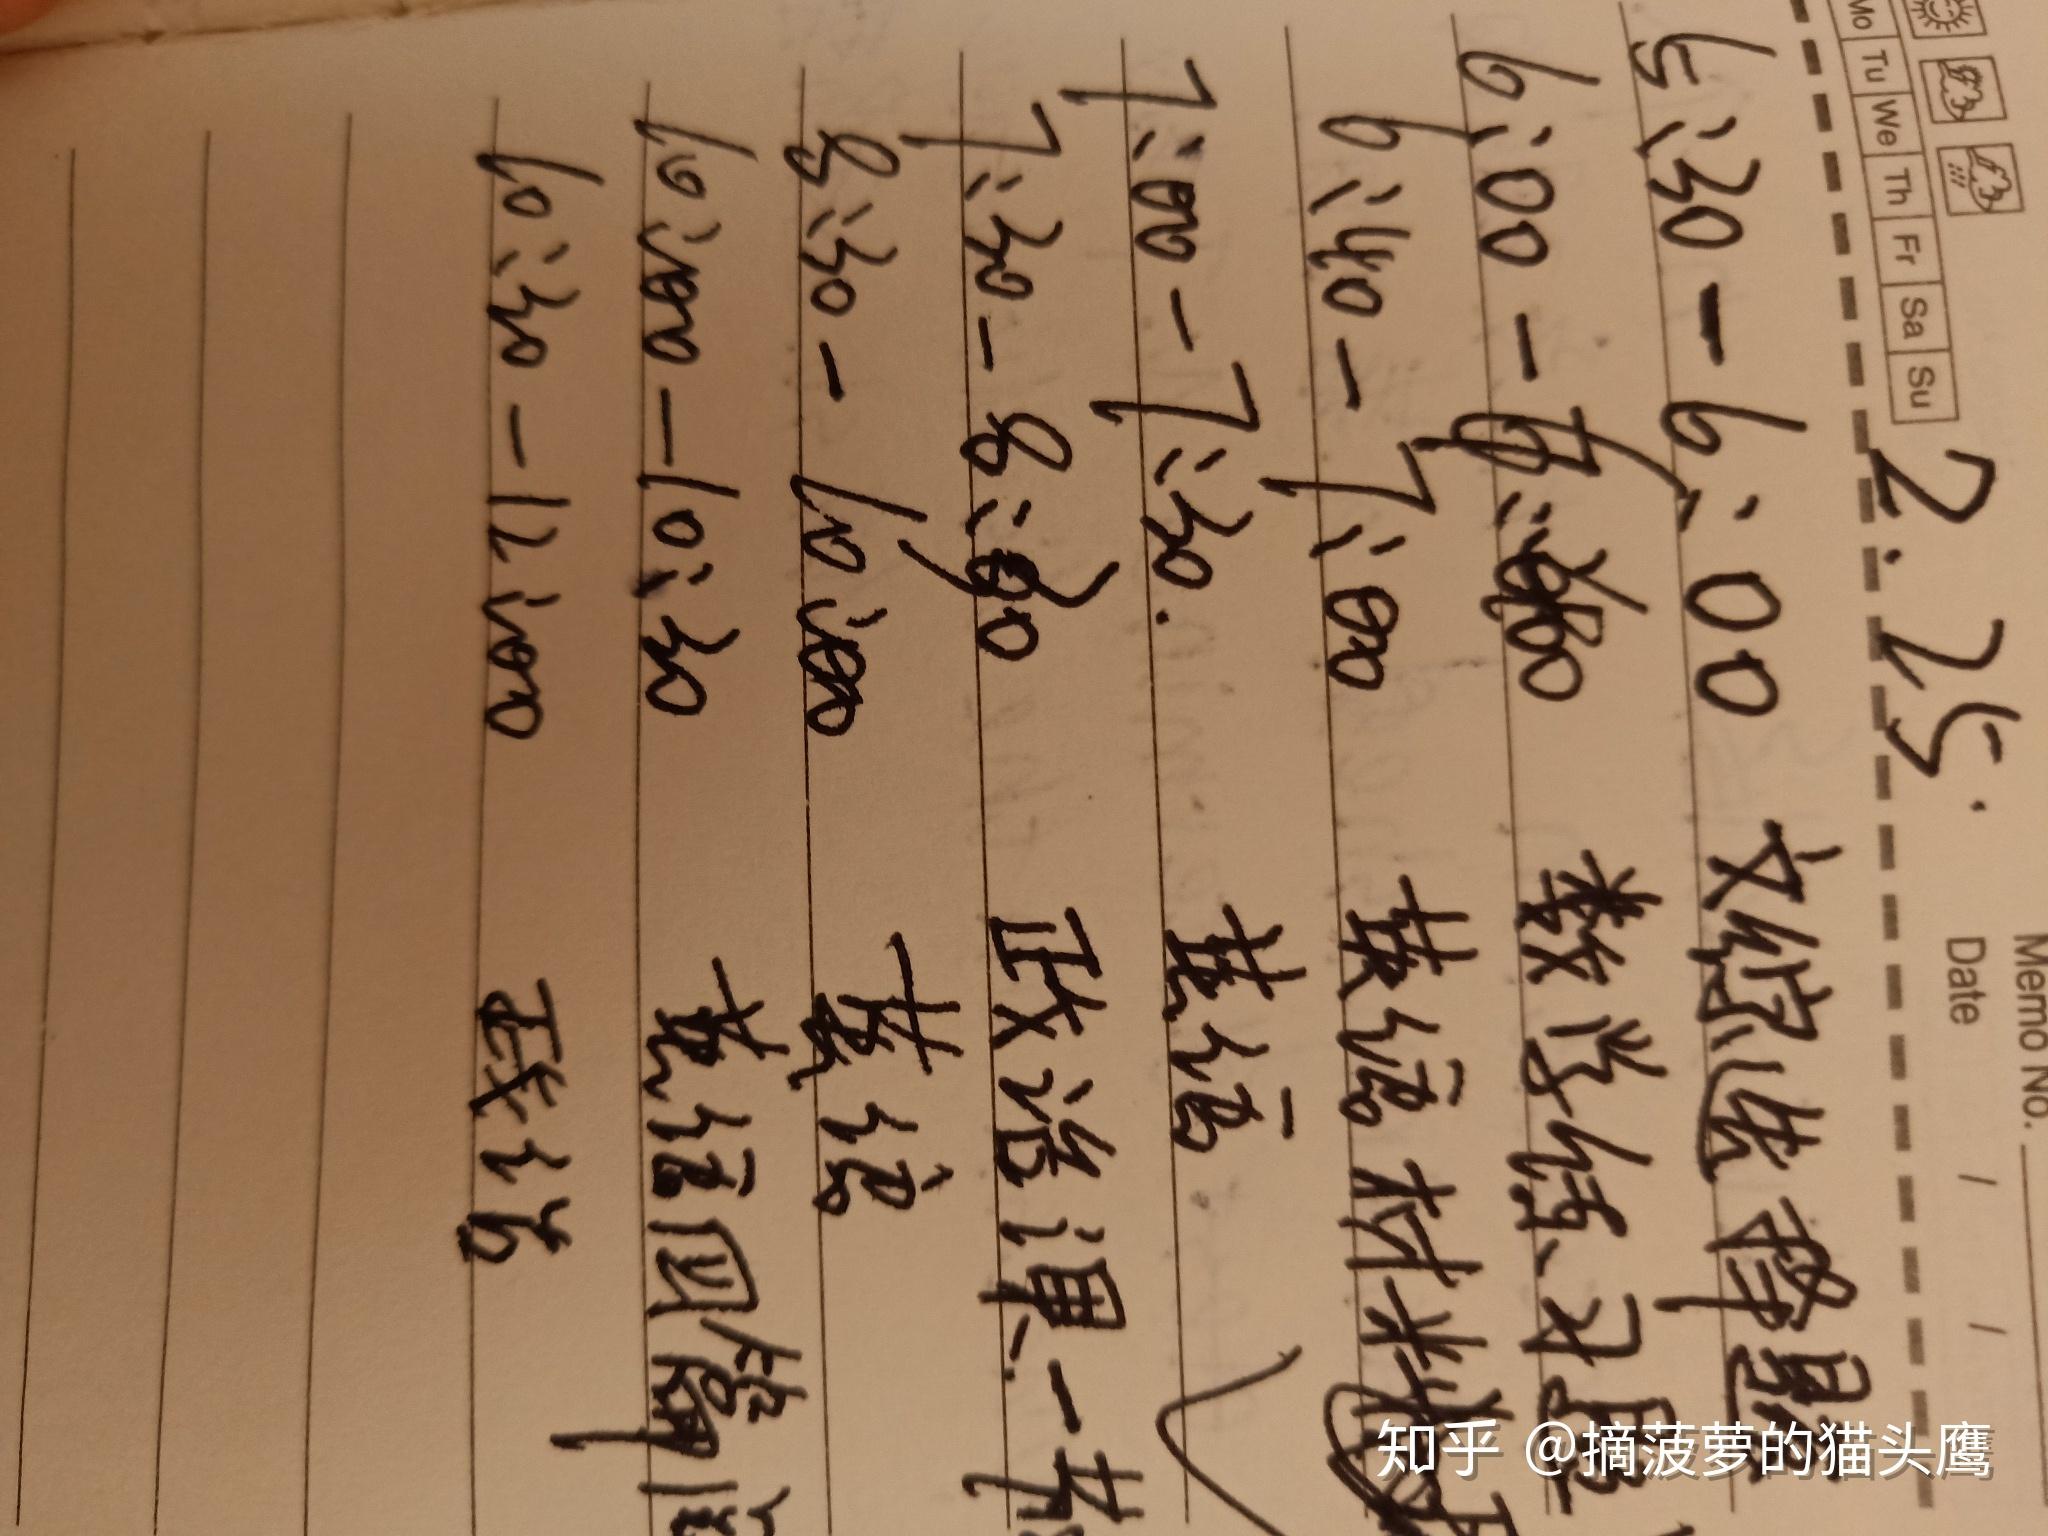 Memo No.
Mo Tu We Th Fr Sa Su
Date / /
2.25.
5:30-6:00 文综选择题
6:00-6:40 数学练习
6:40-7:00 英语材料
7:00-7:30. 英语
7:30-8:30 政治课一节
8:30-10:00 英语
10:00-10:30 英语
10:30-12:00
知乎 @摘菠萝的猫头鹰